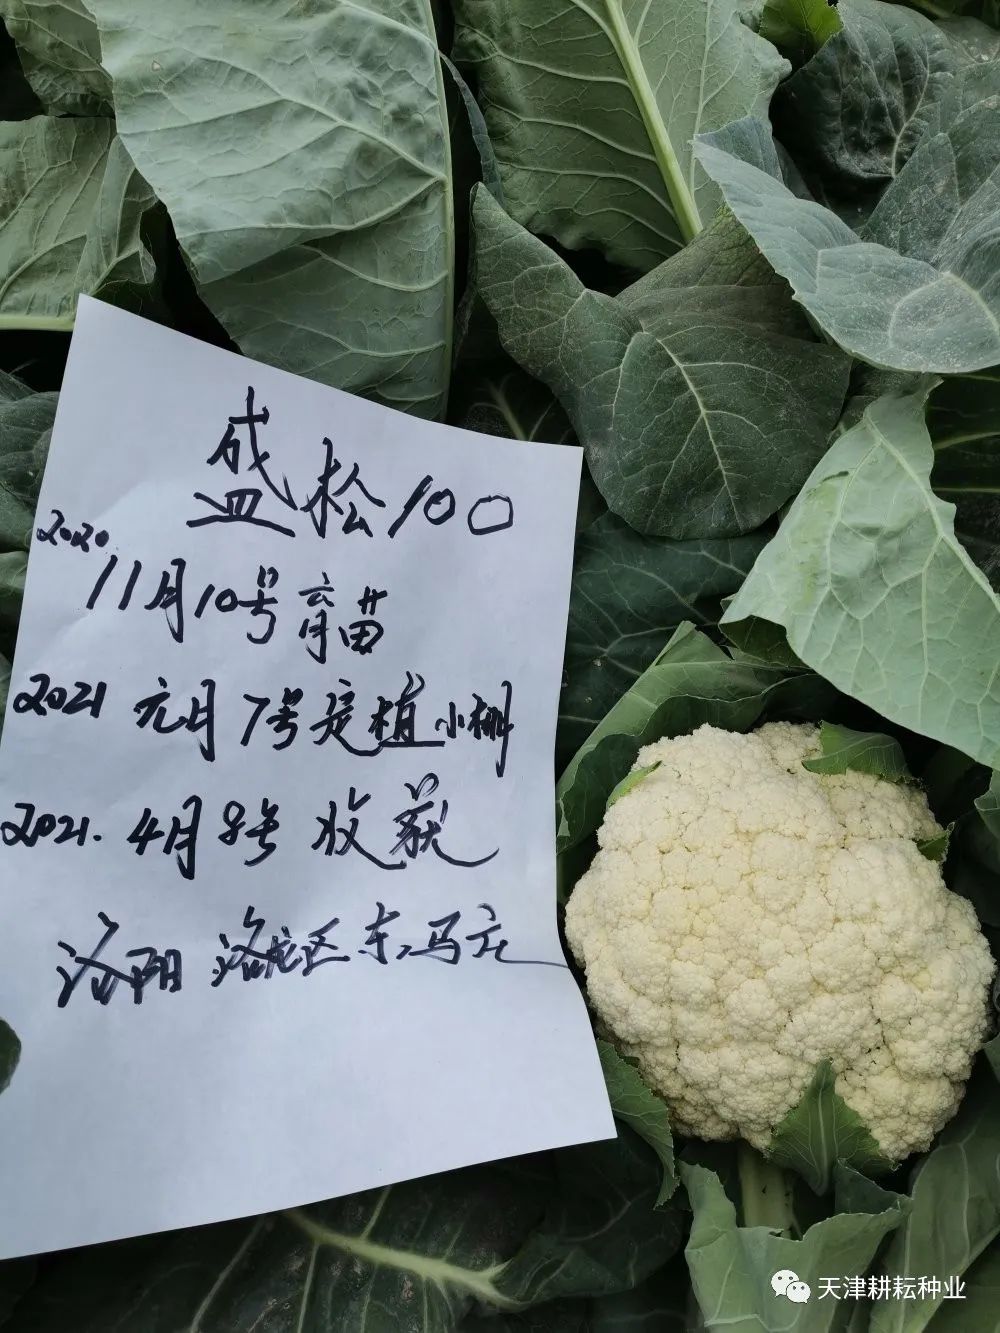 盛松100
2020
11月10号育苗
2021 元月7号定植小棚
2021.4月8号 收获
洛阳 洛龙区东马庄
天津耕耘种业